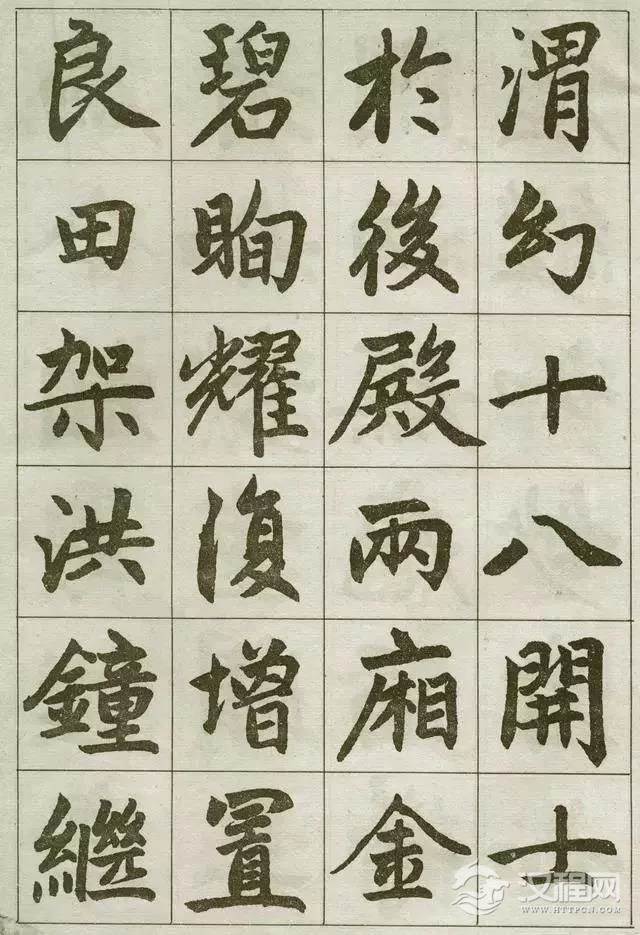 渭幻十八開士
於後殿兩廂金
碧眴耀復增置
良田架洪鐘繼
汉程网
WWW.HTTPCN.COM